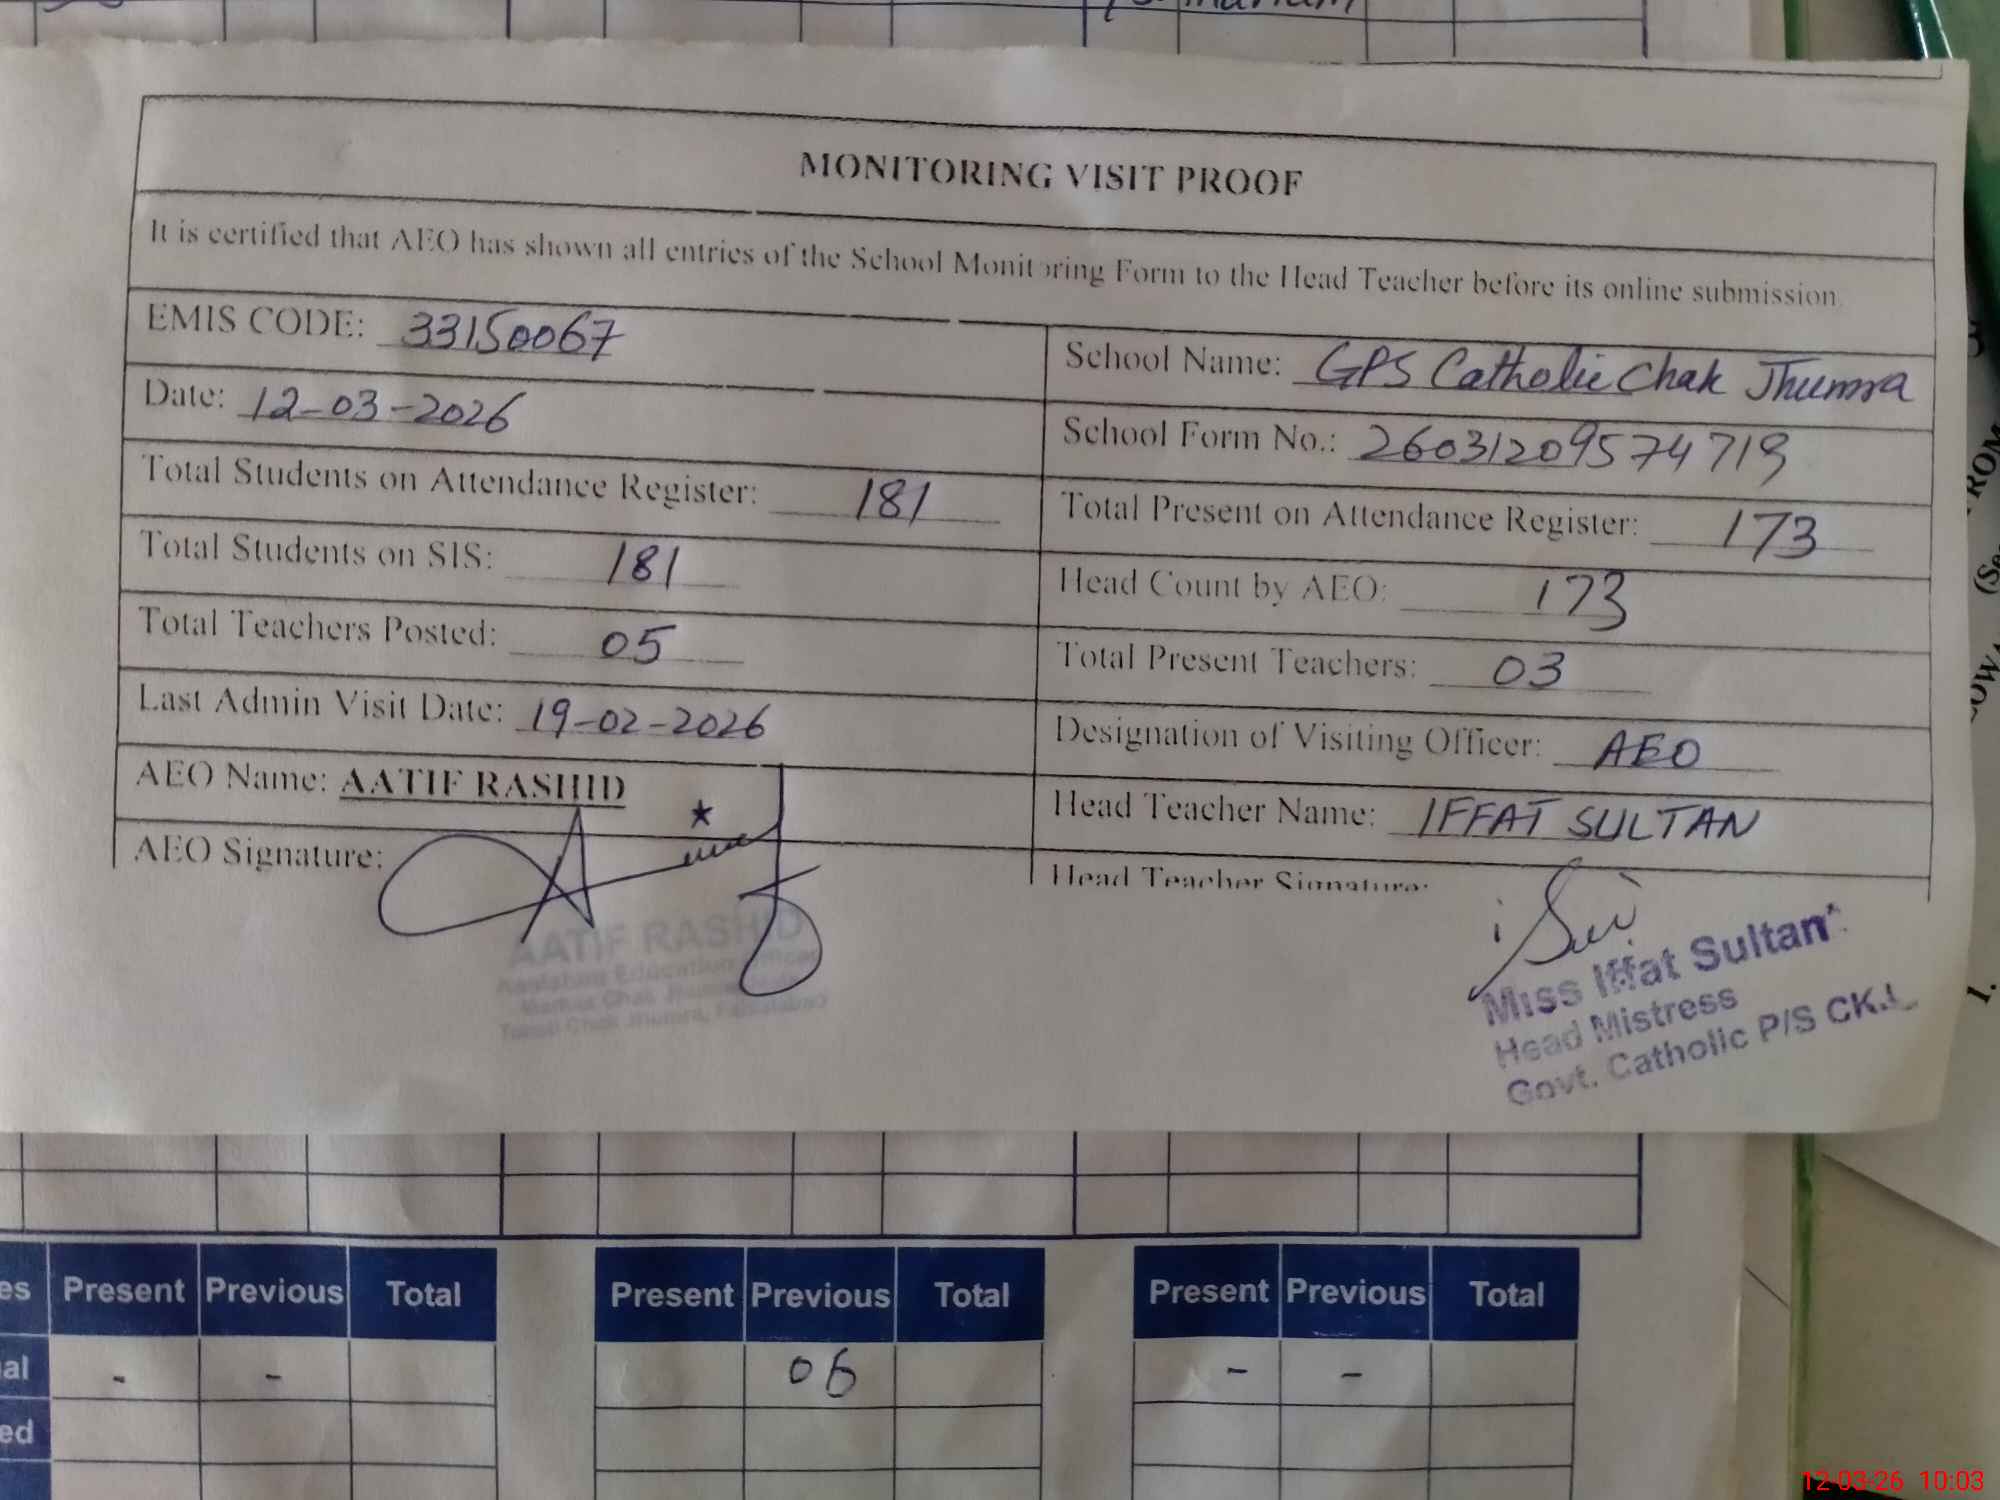 MONITORING VISIT PROOF
It is certified that AEO has shown all entries of the School Monitoring Form to the Head Teacher before its online submission
EMIS CODE: 33150067
School Name: GPS Catholic Chak Jhumra
Date: 12-03-2026
School Form No.: 26031209574719
Total Students on Attendance Register: 181
Total Present on Attendance Register: 173
Total Students on SIS: 181
Head Count by AEO: 173
Total Teachers Posted: 05
Total Present Teachers: 03
Last Admin Visit Date: 19-02-2026
Designation of Visiting Officer: AEO
AEO Name: AATIF RASHID
Head Teacher Name: IFFAT SULTAN
AEO Signature:
Head Teacher Signature:
AATIF RASHID
Education
Chak Jhumra, Faisalabad
Miss Iffat Sultan
Head Mistress
Govt. Catholic P/S CK.J
es Present Previous Total Present Previous Total Present Previous Total
al - - 06 - -
ed
ROM
12-03-26 10:03